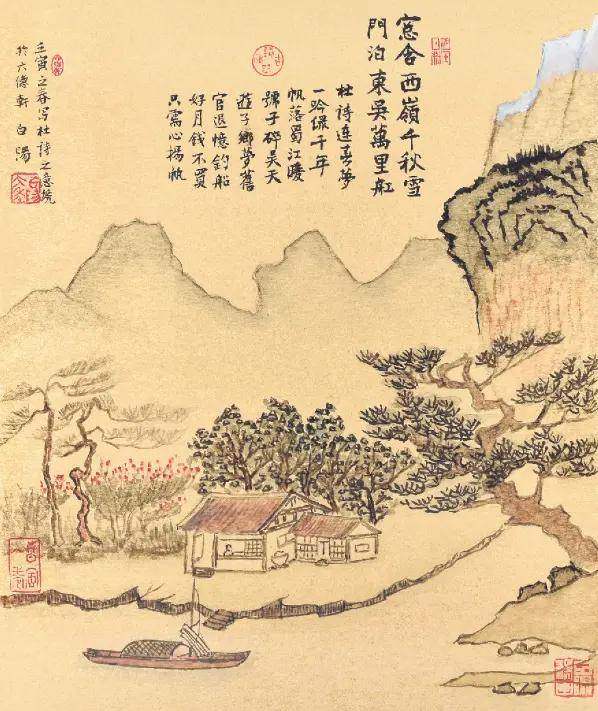 窓含西嶺千秋雪
門泊東吳萬里船
杜詩連喜夢
一吟保千年
帆落蜀江暖
號子碎吳天
遊子鄉夢舊
官退憶釣船
好月錢不買
只需心揚帆
壬寅之春写杜詩之意境
於六德軒 白陽